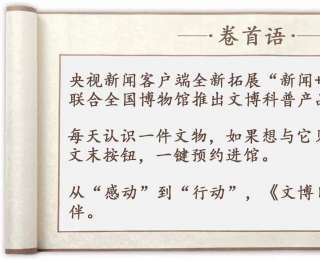 卷首语
央视新闻客户端全新拓展“新闻+
联合全国博物馆推出文博科普产品
每天认识一件文物，如果想与它见
文末按钮，一键预约进馆。
从“感动”到“行动”，《文博
伴。